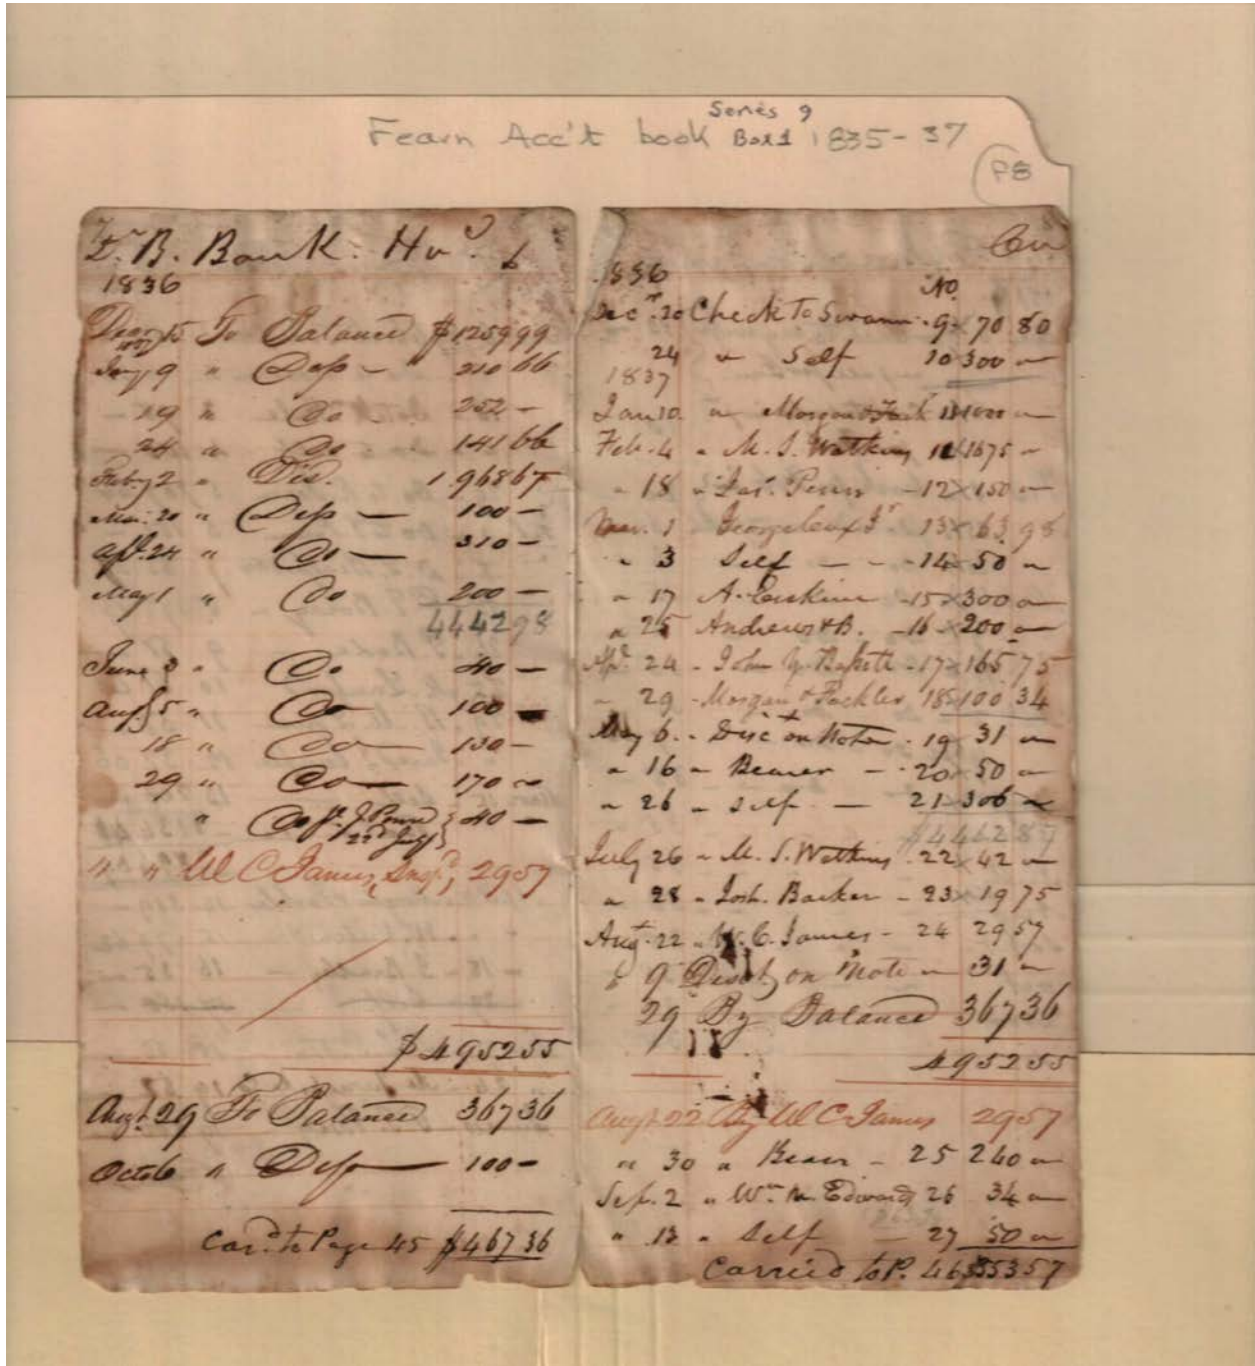 Series 9
Fearn Acc't book Box 1 1835-37
P8
Dr. B. Bank. Hu
1836
15 To Balance $1259 99
Jany 9 " Dep - 210 66
19 " Do 252 -
24 " Do 141 66
Feby 2 " Dis. 1968 67
Mar. 20 " Dep - 100 -
Apl. 24 " Do - 310 -
May 1 " Do 200 -
4442 98
June 3 " Do 40 -
Aug 5 " Do 100 -
18 " Do 130 -
29 " Do 170 -
" Do 22d July 40 -
" " W C James, 29 57
$4952 55
Augt. 29 To Balance 367 36
Octo 6 " Dep 100 -
Card. to Page 45 $467 36
Cr
1836
No.
Decr. 20 Check To Swann 9 70 80
24 " Self 10 300 "
1837
Jan 10 " Morgan & 1000 "
Feb. 4 " M. S. Watkins 1675 "
" 18 " Jas. Penn - 12 150 "
Mar. 1 - 13 63 98
" 3 Self - - 14 50 "
" 17 A. Erskine 15 300 "
" 25 Andrews & B. 16 200 "
Apl. 24 - John Y. 17 165 75
" 29 - Morgan & Fackler 18 100 34
May 6. - Disct on Note - 19 31 "
" 16 " Bearer - 20 50 "
" 26 " Self - 21 306 "
$4462 87
July 26 " M. S. Watkins 22 42 "
" 28 " Josh. Barker - 23 19 75
Augt. 22 " W. C. James - 24 29 57
9 Disct on Note " 31 "
29 By Balance 367 36
4952 55
Augt 22 By W C James 29 57
" 30 " Bearer - 25 240 "
Sep. 2 " Wm. Edwards 26 34 "
" 13 " Self - 27 50 "
Carried to P. 46 353 57